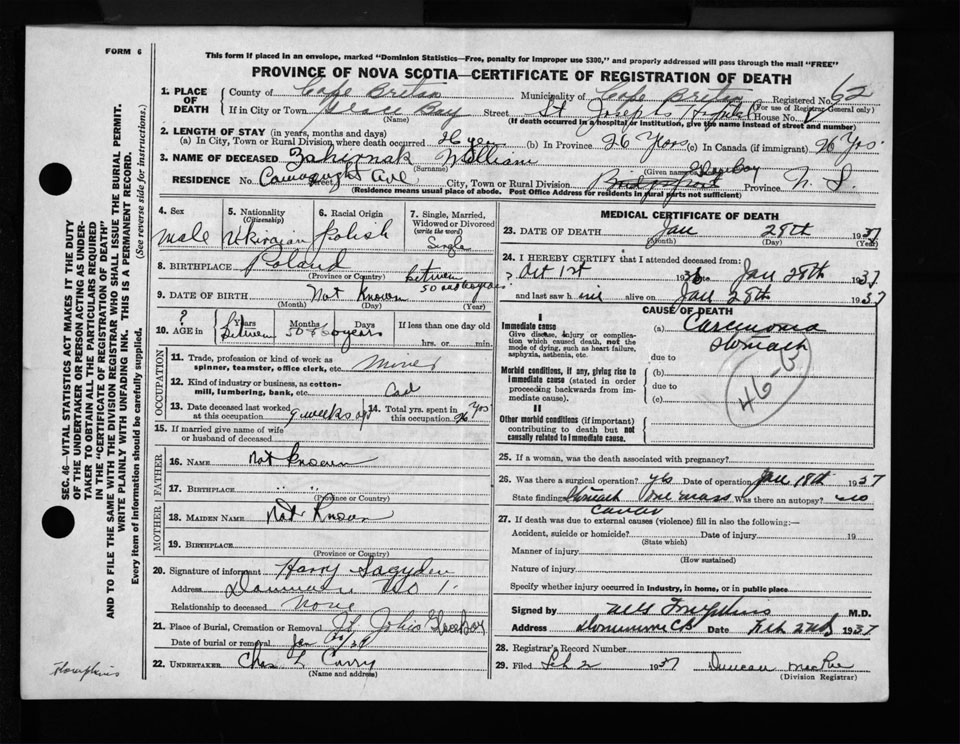 FORM 6
This form if placed in an envelope, marked "Dominion Statistics—Free, penalty for improper use $300," and properly addressed will pass through the mail "FREE"
PROVINCE OF NOVA SCOTIA—CERTIFICATE OF REGISTRATION OF DEATH
1. PLACE OF DEATH
County of Cape Breton Municipality of Cape Breton Registered No. 62
(For use of Registrar General only)
If in City or Town Glace Bay Street St Joseph's Hospital House No.
(Name) (If death occurred in a hospital or institution, give the name instead of street and number)
2. LENGTH OF STAY (in years, months and days)
(a) In City, Town or Rural Division where death occurred 26 years (b) In Province 26 Years (c) In Canada (if immigrant) 26 Yrs.
3. NAME OF DECEASED Zahirnak William
(Surname) (Given name)
RESIDENCE No. Street Ave City, Town or Rural Division Glace Bay Province N. S.
(Residence means usual place of abode. Post Office Address for residents in rural parts not sufficient)
4. Sex
male
5. Nationality
(Citizenship)
Ukirainian
6. Racial Origin
Polish
7. Single, Married, Widowed or Divorced
(write the word)
Single
8. BIRTHPLACE Poland
(Province or Country)
between 50 and 60 years
9. DATE OF BIRTH Not Known
(Month) (Day) (Year)
10. AGE in ? Years Months Days If less than one day old
between 50-60 years hrs. or min.
OCCUPATION
11. Trade, profession or kind of work as spinner, teamster, office clerk, etc. Miner
12. Kind of industry or business, as cotton-mill, lumbering, bank, etc. Coal
13. Date deceased last worked at this occupation 9 weeks ago
14. Total yrs. spent in this occupation 26 Yrs
15. If married give name of wife or husband of deceased
FATHER
16. NAME Not Known
17. BIRTHPLACE " "
(Province or Country)
MOTHER
18. MAIDEN NAME Not Known
19. BIRTHPLACE
(Province or Country)
20. Signature of informant Harry
Address Dominion No 1
Relationship to deceased None
21. Place of Burial, Cremation or Removal St Johns Glace Bay
Date of burial or removal Jan
22. UNDERTAKER Chas L Curry
(Name and address)
MEDICAL CERTIFICATE OF DEATH
23. DATE OF DEATH Jan 28th 1937
(Month) (Day) (Year)
24. I HEREBY CERTIFY that I attended deceased from:
? Oct 1st 1936 to Jan 28th 1937
and last saw him alive on Jan 28th 1937
CAUSE OF DEATH
I
Immediate cause
Give disease, injury or complication which caused death, not the mode of dying, such as heart failure, asphyxia, asthenia, etc.
(a) Carcinoma
Stomach
due to
Morbid conditions, if any, giving rise to immediate cause (stated in order proceeding backwards from immediate cause).
(b)
due to
(c)
46-B
II
Other morbid conditions (if important) contributing to death but not causally related to immediate cause.
25. If a woman, was the death associated with pregnancy?
26. Was there a surgical operation? yes Date of operation Jan 18th 1937
State findings Stomach one mass Was there an autopsy? no
Cancer
27. If death was due to external causes (violence) fill in also the following:—
Accident, suicide or homicide? Date of injury 19
(State which)
Manner of injury
(How sustained)
Nature of injury
Specify whether injury occurred in industry, in home, or in public place
Signed by Tompkins M.D.
Address Dominion CB Date Feb 2nd 1937
28. Registrar's Record Number
29. Filed Feb 2 1937 Duncan
(Division Registrar)
SEC. 46—VITAL STATISTICS ACT MAKES IT THE DUTY
OF THE UNDERTAKER OR PERSON ACTING AS UNDER-
TAKER TO OBTAIN ALL THE PARTICULARS REQUIRED
IN THE "CERTIFICATE OF REGISTRATION OF DEATH"
AND TO FILE THE SAME WITH THE DIVISION REGISTRAR WHO SHALL ISSUE THE BURIAL PERMIT.
WRITE PLAINLY WITH UNFADING INK. THIS IS A PERMANENT RECORD.
Every item of information should be carefully supplied. (See reverse side for instructions.)
Tompkins